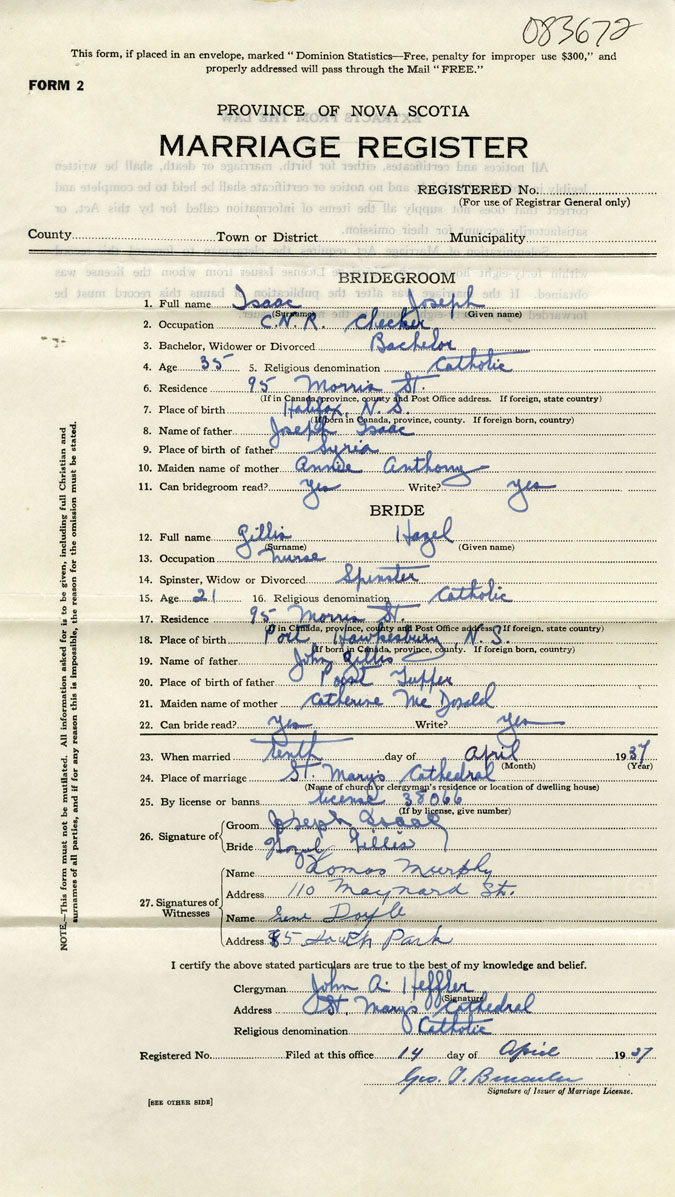 083672
This form, if placed in an envelope, marked "Dominion Statistics—Free, penalty for improper use $300," and
properly addressed will pass through the Mail "FREE."
FORM 2
PROVINCE OF NOVA SCOTIA
MARRIAGE REGISTER
REGISTERED No.
(For use of Registrar General only)
County Town or District Municipality
BRIDEGROOM
1. Full name Isaac Joseph
(Surname) (Given name)
2. Occupation C.N.R. Checker
3. Bachelor, Widower or Divorced Bachelor
4. Age 35 5. Religious denomination Catholic
6. Residence 95 Morris St.
(If in Canada, province, county and Post Office address. If foreign, state country)
7. Place of birth Halifax, N.S.
(If born in Canada, province, county. If foreign born, country)
8. Name of father Joseph Isaac
9. Place of birth of father Syria
10. Maiden name of mother Annie Anthony
11. Can bridegroom read? yes Write? yes
BRIDE
12. Full name Gillis Hazel
(Surname) (Given name)
13. Occupation nurse
14. Spinster, Widow or Divorced Spinster
15. Age 21 16. Religious denomination Catholic
17. Residence 95 Morris St.
(If in Canada, province, county and Post Office address. If foreign, state country)
18. Place of birth Port Hawkesbury, N.S.
(If born in Canada, province, county. If foreign born, country)
19. Name of father John Gillis
20. Place of birth of father Point Tupper
21. Maiden name of mother Catherine McDonald
22. Can bride read? yes Write? yes
23. When married tenth day of April 1937
(Month) (Year)
24. Place of marriage St. Mary's Cathedral
(Name of church or clergyman's residence or location of dwelling house)
25. By license or banns license 38066
(If by license, give number)
26. Signature of Groom Joseph Isaac
Bride Hazel Gillis
27. Signatures of Witnesses
Name Thomas Murphy
Address 110 Maynard St.
Name Gene Doyle
Address 85 South Park
I certify the above stated particulars are true to the best of my knowledge and belief.
Clergyman John A. Heffler
(Signature)
Address St. Mary's Cathedral
Religious denomination Catholic
Registered No. Filed at this office 14 day of April 1937
Geo. 
Signature of Issuer of Marriage License.
[SEE OTHER SIDE]
NOTE.—This form must not be mutilated. All information asked for is to be given, including full Christian and
surnames of all parties, and if for any reason this is impossible, the reason for the omission must be stated.